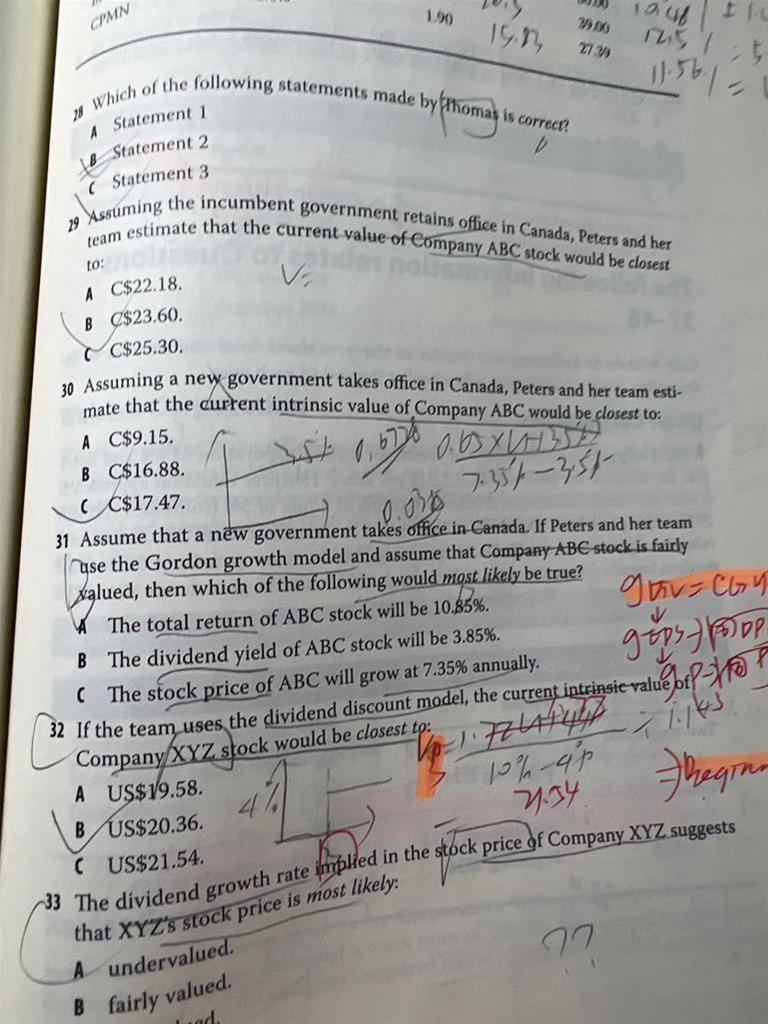 CPMN 1.90 39.00
15.83 27.39 12.5 / = 5
11.56 / =
28 Which of the following statements made by Thomas is correct?
A Statement 1
B Statement 2
C Statement 3
29 Assuming the incumbent government retains office in Canada, Peters and her
team estimate that the current value of Company ABC stock would be closest
to:
V=
A C$22.18.
B C$23.60.
C C$25.30.
30 Assuming a new government takes office in Canada, Peters and her team esti-
mate that the current intrinsic value of Company ABC would be closest to:
A C$9.15.
B C$16.88.
C C$17.47.
3.5%
7.35% - 3.5%
31 Assume that a new government takes office in Canada. If Peters and her team
use the Gordon growth model and assume that Company ABC stock is fairly
valued, then which of the following would most likely be true?
A The total return of ABC stock will be 10.85%.
B The dividend yield of ABC stock will be 3.85%.
C The stock price of ABC will grow at 7.35% annually.
32 If the team uses the dividend discount model, the current intrinsic value of
Company XYZ stock would be closest to:
10% - 4%
A US$19.58.
4%
B US$20.36.
C US$21.54.
33 The dividend growth rate implied in the stock price of Company XYZ suggests
that XYZ's stock price is most likely:
??
A undervalued.
B fairly valued.